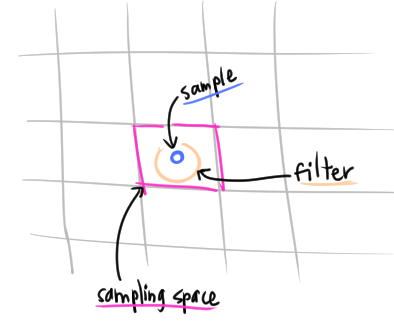 sample
filter
sampling space